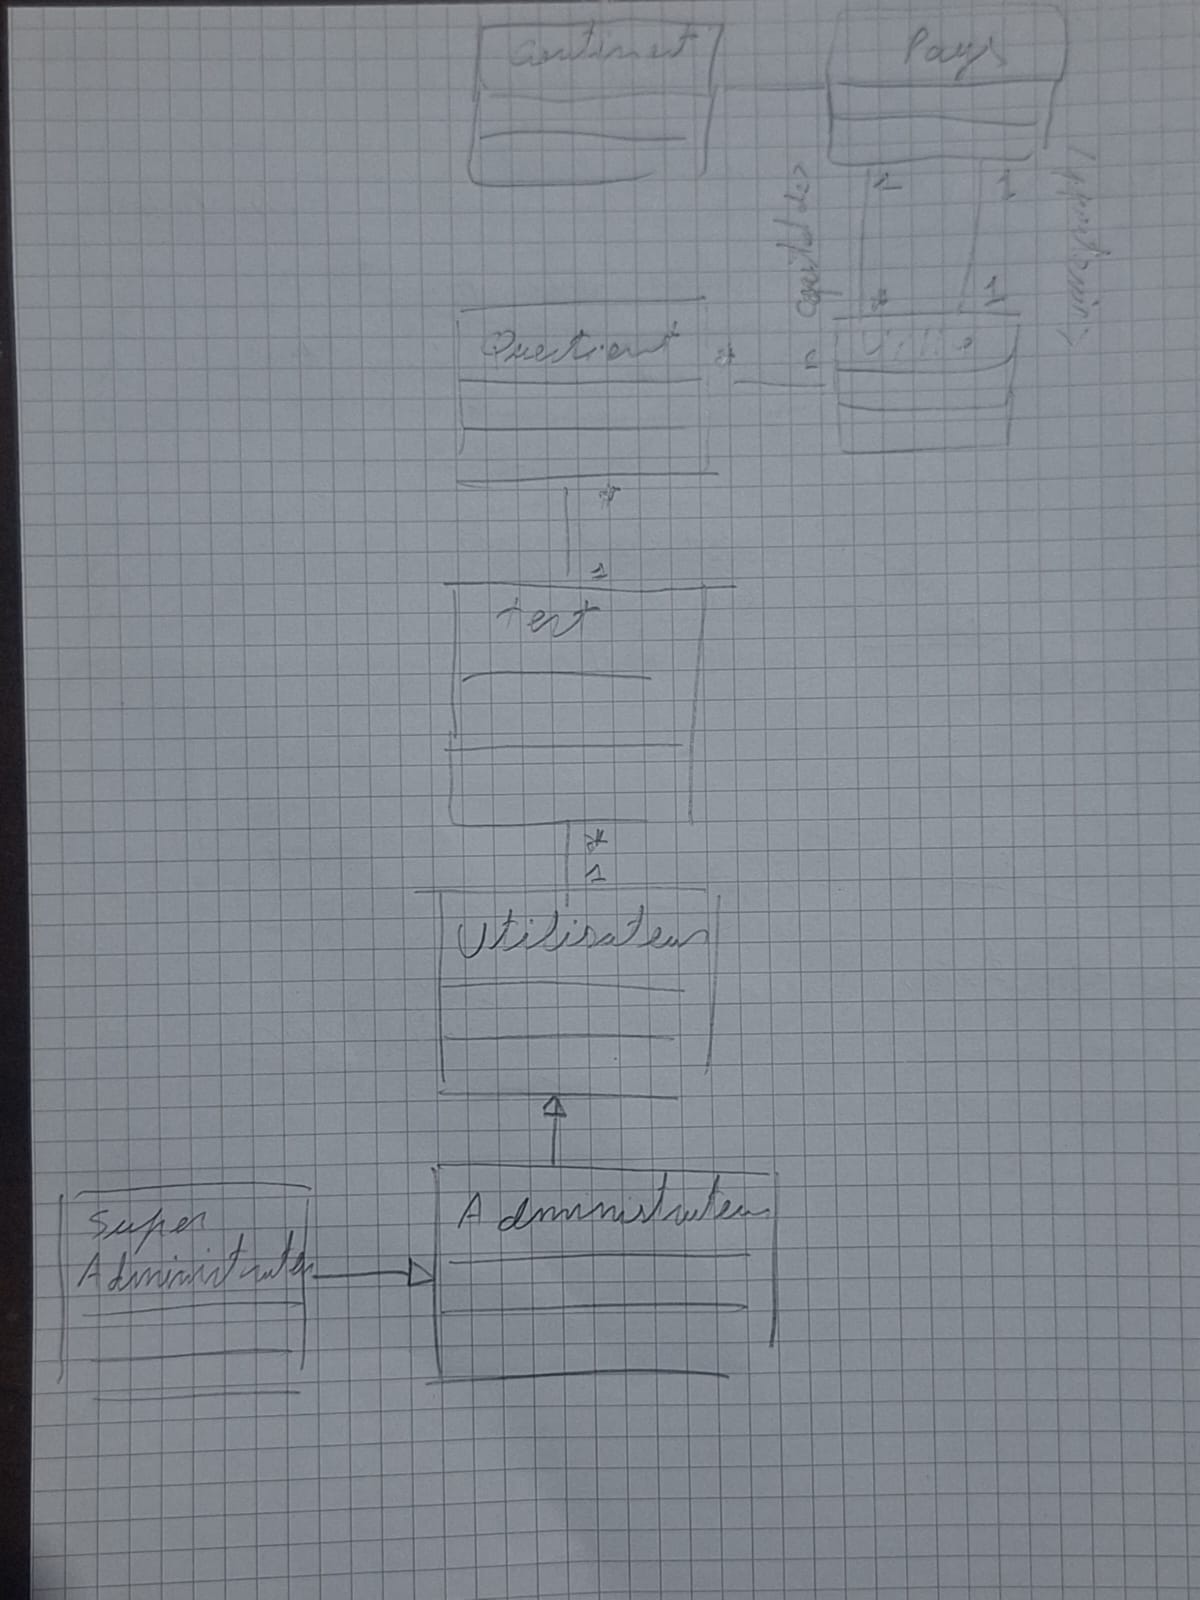 Continent
Pays
1
1
capital de >
*
1
Question
*
Ville
*
1
test
*
1
Utilisateur
Administrateur
Super
Administrateur